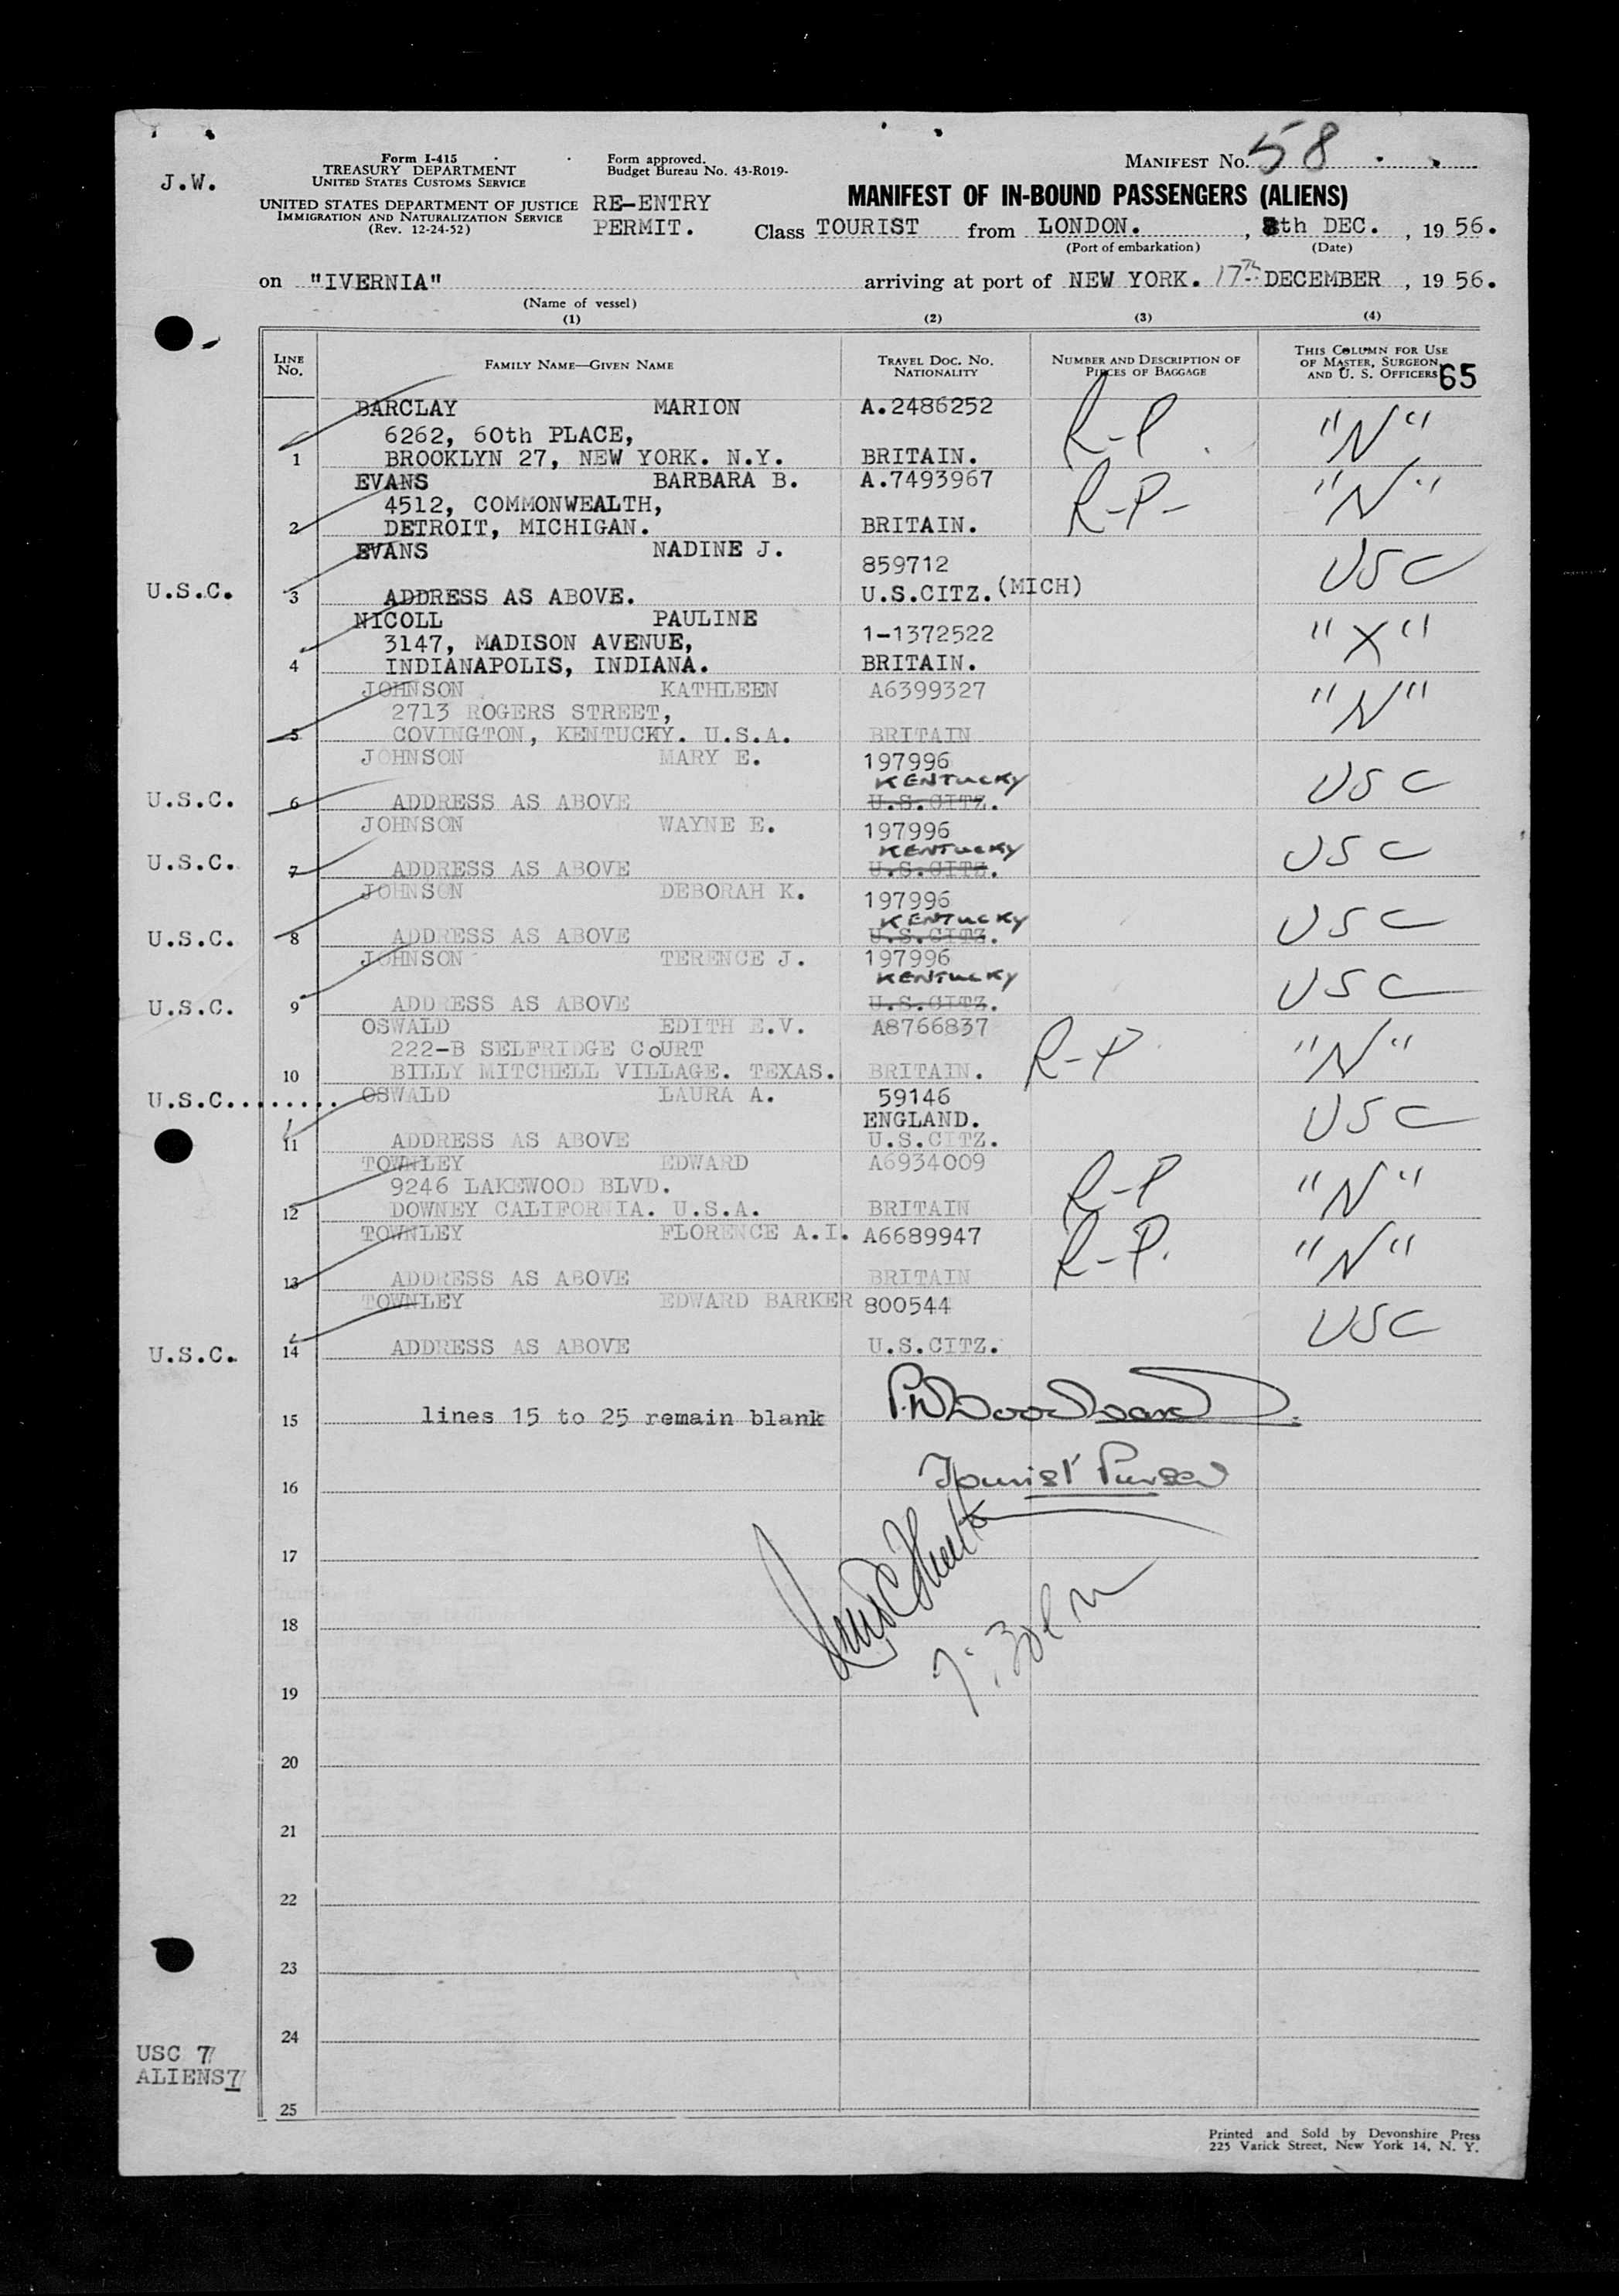 J.W.
Form I-415
TREASURY DEPARTMENT
UNITED STATES CUSTOMS SERVICE
UNITED STATES DEPARTMENT OF JUSTICE
IMMIGRATION AND NATURALIZATION SERVICE
(Rev. 12-24-52)
Form approved.
Budget Bureau No. 43-R019-
RE-ENTRY
PERMIT.
MANIFEST No. 58
MANIFEST OF IN-BOUND PASSENGERS (ALIENS)
Class TOURIST from LONDON. , 8th DEC. , 19 56.
(Port of embarkation) (Date)
on "IVERNIA" arriving at port of NEW YORK. 17th DECEMBER , 19 56.
(Name of vessel)
(1) (2) (3) (4)
LINE No. FAMILY NAME—GIVEN NAME TRAVEL DOC. NO. NATIONALITY NUMBER AND DESCRIPTION OF PIECES OF BAGGAGE THIS COLUMN FOR USE OF MASTER, SURGEON, AND U. S. OFFICERS 65
BARCLAY MARION A.2486252 R-P "N"
6262, 60th PLACE,
1 BROOKLYN 27, NEW YORK. N.Y. BRITAIN.
EVANS BARBARA B. A.7493967 R-P- "N"
4512, COMMONWEALTH,
2 DETROIT, MICHIGAN. BRITAIN.
EVANS NADINE J. 859712 USC
U.S.C. 3 ADDRESS AS ABOVE. U.S.CITZ.(MICH)
NICOLL PAULINE 1-1372522 "X"
3147, MADISON AVENUE,
4 INDIANAPOLIS, INDIANA. BRITAIN.
JOHNSON KATHLEEN A6399327 "N"
2713 ROGERS STREET,
5 COVINGTON, KENTUCKY. U.S.A. BRITAIN
JOHNSON MARY E. 197996 USC
KENTUCKY
U.S.C. 6 ADDRESS AS ABOVE U.S.CITZ.
JOHNSON WAYNE E. 197996 USC
KENTUCKY
U.S.C. 7 ADDRESS AS ABOVE U.S.CITZ.
JOHNSON DEBORAH K. 197996 USC
KENTUCKY
U.S.C. 8 ADDRESS AS ABOVE U.S.CITZ.
JOHNSON TERENCE J. 197996 USC
KENTUCKY
U.S.C. 9 ADDRESS AS ABOVE U.S.CITZ.
OSWALD EDITH E.V. A8766837 R-P "N"
222-B SELFRIDGE CoURT
10 BILLY MITCHELL VILLAGE. TEXAS. BRITAIN.
U.S.C........ OSWALD LAURA A. 59146 USC
ENGLAND.
11 ADDRESS AS ABOVE U.S.CITZ.
TOWNLEY EDWARD A6934009 R-P "N"
9246 LAKEWOOD BLVD.
12 DOWNEY CALIFORNIA. U.S.A. BRITAIN
TOWNLEY FLORENCE A.I. A6689947 R-P. "N"
13 ADDRESS AS ABOVE BRITAIN
TOWNLEY EDWARD BARKER 800544 USC
U.S.C. 14 ADDRESS AS ABOVE U.S.CITZ.
15 lines 15 to 25 remain blank P.W. Woodward.
16 Tourist Purser
17
18
19
20
21
22
23
24
USC 7
ALIENS7
25
Printed and Sold by Devonshire Press
225 Varick Street, New York 14, N. Y.